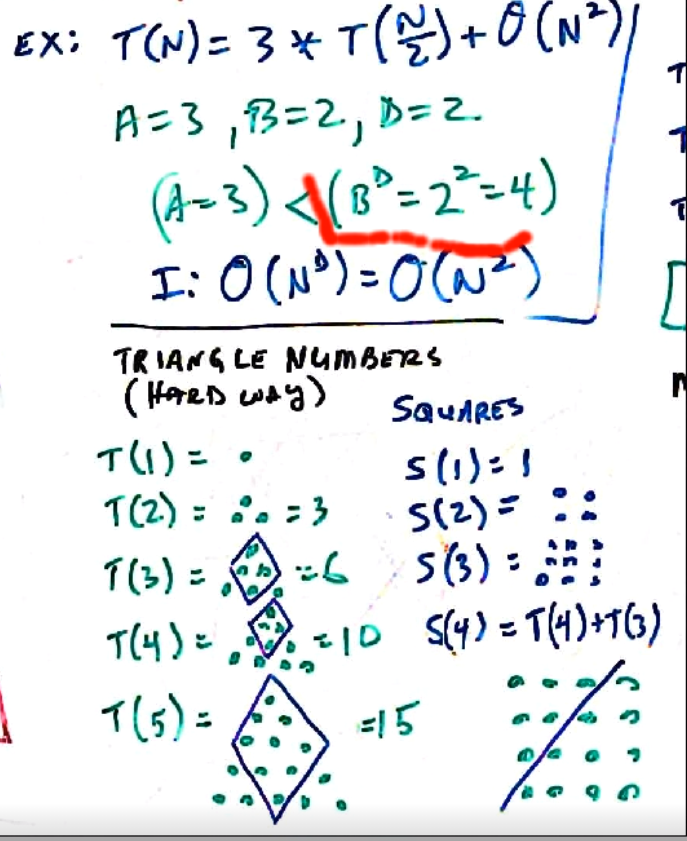 EX: T(N) = 3 * T(N/2) + O(N²)
A=3, B=2, D=2.
(A=3) < (B^D = 2² = 4)
I: O(N^D) = O(N²)
TRIANGLE NUMBERS
(HARD WAY)
T(1) =
T(2) = = 3
T(3) = = 6
T(4) = = 10
T(5) = = 15
SQUARES
S(1) = 1
S(2) =
S(3) =
S(4) = T(4)+T(3)